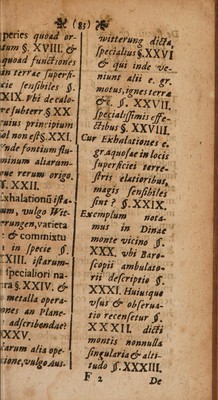 (83)
peries quoad or-
dum §. XVIII. &
quoad functiones
an terræ superfi-
cie sensibiles §.
XIX. Vbi de calo-
re subterr §. XX
cuius principium
Sol non est §. XXI.
Vnde fontium flu-
minum aliarum-
que rerum origo.
§. XXII.
Exhalationũ ista-
um, vulgo Wit-
terungen, varieta
& commixtu
in specie §.
XXIII. istarum-
specialiori na-
ra §. XXIV. &
metalla opera-
ones an Plane-
adscribendae?
XXV.
tarum alia ope-
tione, vulgo Aus-
witterung dicta,
specialius §. XXVI
& qui inde ve-
niunt alii e. gr.
motus, ignes terræ
&c. §. XXVII.
specialissimis effe-
ctibus §. XXVIII.
Cur Exhalationes e.
gr. aquosae in locis
superficiei terre-
stris elatioribus,
magis sensibiles
sint? §. XXIX.
Exemplum nota-
mus in Dinae
monte vicino §.
XXX. vbi Baro-
scopii ambulato-
rii descriptio §.
XXXI. Huiusque
vsus & observa-
tio recensetur §.
XXXII. dicti
montis nonnulla
singularia & alti-
tudo §. XXXIII.
F 2 De